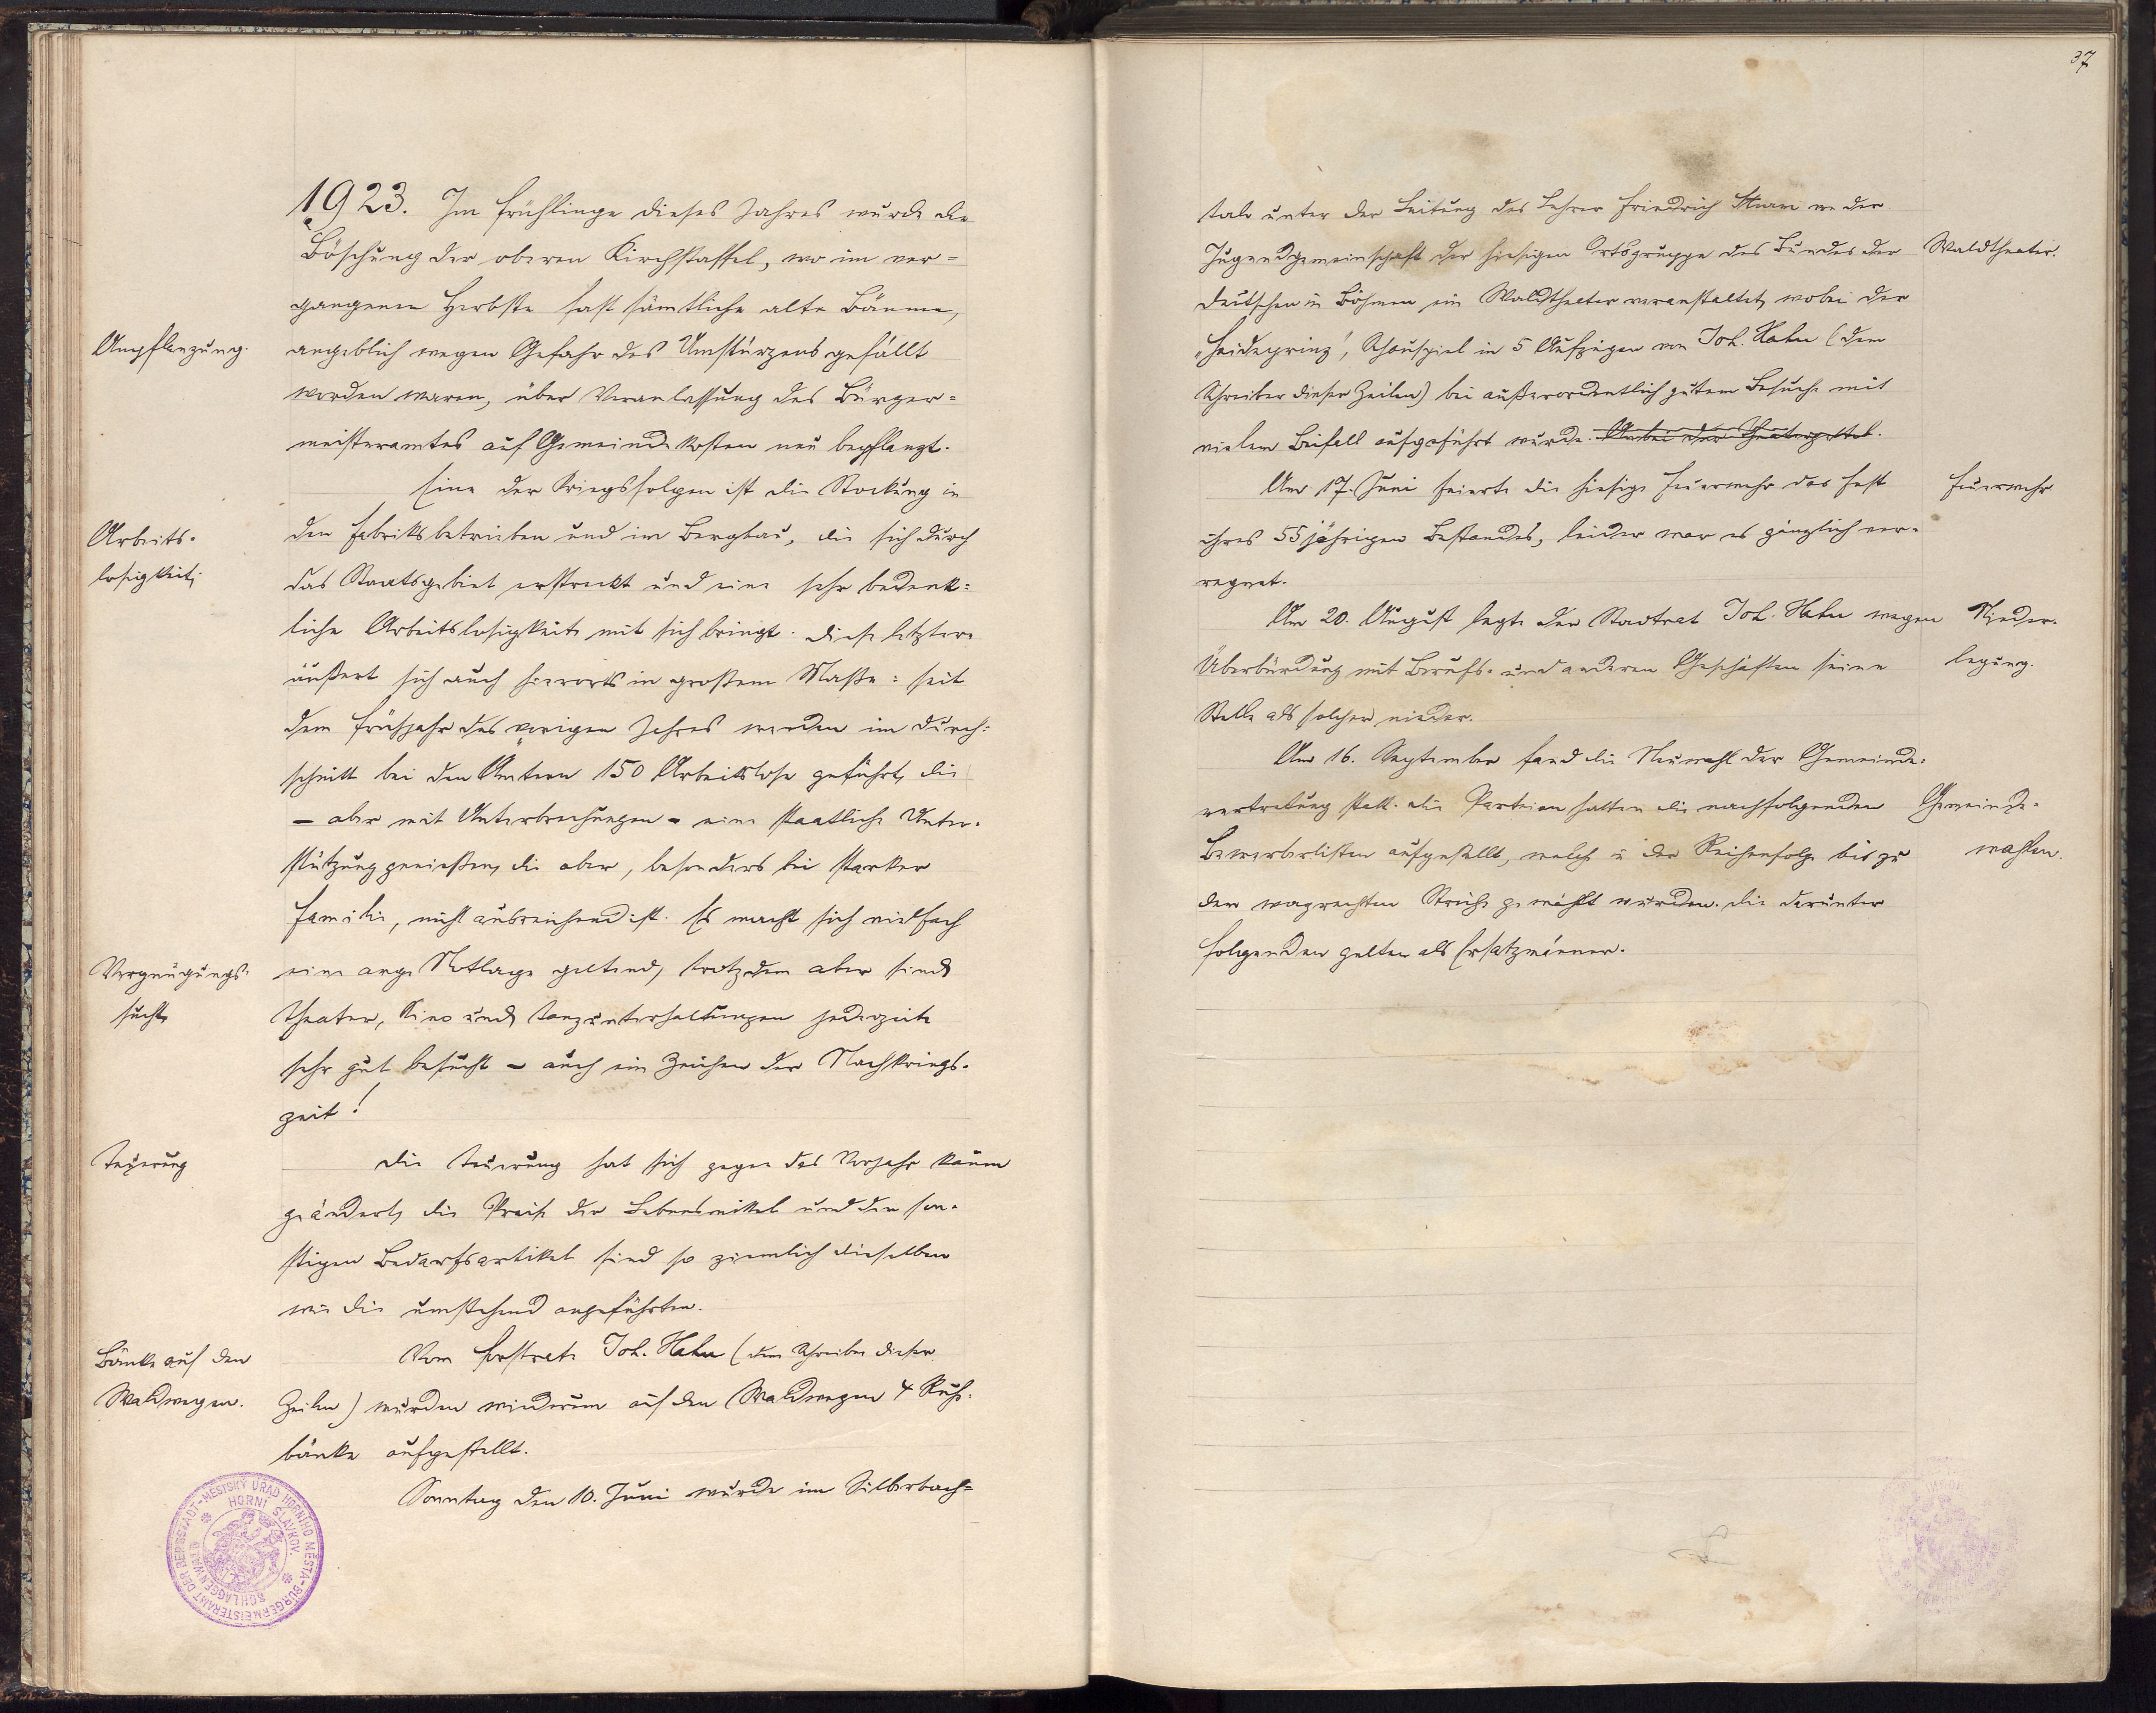 37
1923. Im Frühlinge dieses Jahres wurde die
Böschung der oberen Kirchstaffel, wo im ver=
gangenen Herbste fast sämtliche alte Bäume,
Anpflanzung.
angeblich wegen Gefahr des Umstürzens gefällt
worden waren, über Veranlassung des Bürger=
meisteramtes auf Gemeindekosten neu bepflanzt.
Eine der Kriegsfolgen ist die Stockung in
Arbeits-
den Fabriksbetrieben und im Bergbau, die sich durch
losigkeit,
das Staatsgebiet erstreckt und eine sehr bedenk=
liche Arbeitslosigkeit mit sich bringt. Diese letztere
äußert sich auch hierorts in großem Maße: seit
dem Frühjahr des vorigen Jahres werden im Durch=
schnitt bei den Ämtern 150 Arbeitslose geführt, die
– aber mit Unterbrechungen – eine staatliche Unter-
stützung genießen, die aber, besonders bei starker
Familie, nicht ausreichend ist. Es macht sich vielfach
Vergnügungs-
eine arge Notlage geltend, trotzdem aber sind
sucht,
Theater, Kino und Tanzunterhaltungen jederzeit
sehr gut besucht – auch ein Zeichen der Nachkriegs-
zeit!
Teuerung
Die Teuerung hat sich gegen das Vorjahr kaum
geändert, die Preise der Lebensmittel und der son-
stigen Bedarfsartikel sind so ziemlich dieselben
wie die umstehend angeführten.
Bänke auf den
Vom Forstrate Joh. Hahn (dem Schreiber dieser
Waldwegen.
Zeilen) wurden wiederum auf den Waldwegen 4 Ruhe-
bänke aufgestellt.
Sonntag den 10. Juni wurde im Silberbach=
MĚSTSKÝ ÚŘAD HORNÍHO MĚSTA HORNÍ SLAVKOV.
BÜRGERMEISTERAMT DER BERGSTADT SCHLAGGENWALD
tale unter der Leitung des Lehrer Friedrich von der
Jugendgemeinschaft der hiesigen Ortsgruppe des Bundes der
Waldtheater.
Deutschen in Böhmen ein Waldtheater veranstaltet, wobei der
„Heideprinz“, Schauspiel in 5 Aufzügen von Joh. Hahn (dem
Schreiber dieser Zeilen) bei außerordentlich gutem Besuche mit
vielem Beifall aufgeführt wurde. Anbei der Theaterzettel.
Am 17. Juni feierte die hiesige Feuerwehr das Fest
Feuerwehr
ihres 55jährigen Bestandes, leider war es gänzlich ver-
regnet.
Am 20. August legte der Stadtrat Joh. Hahn wegen
Nieder-
Überbürdung mit Berufs- und anderen Geschäften seine
legung.
Stelle als solcher nieder.
Am 16. September fand die Neuwahl der Gemeinde=
vertretung statt. Die Parteien hatten die nachfolgenden
Gemeinde-
Bewerberlisten aufgestellt, welche in der Reihenfolge bis zu
wahlen.
dem wagrechten Striche gewählt wurden. Die darunter
folgenden gelten als Ersatzmänner.